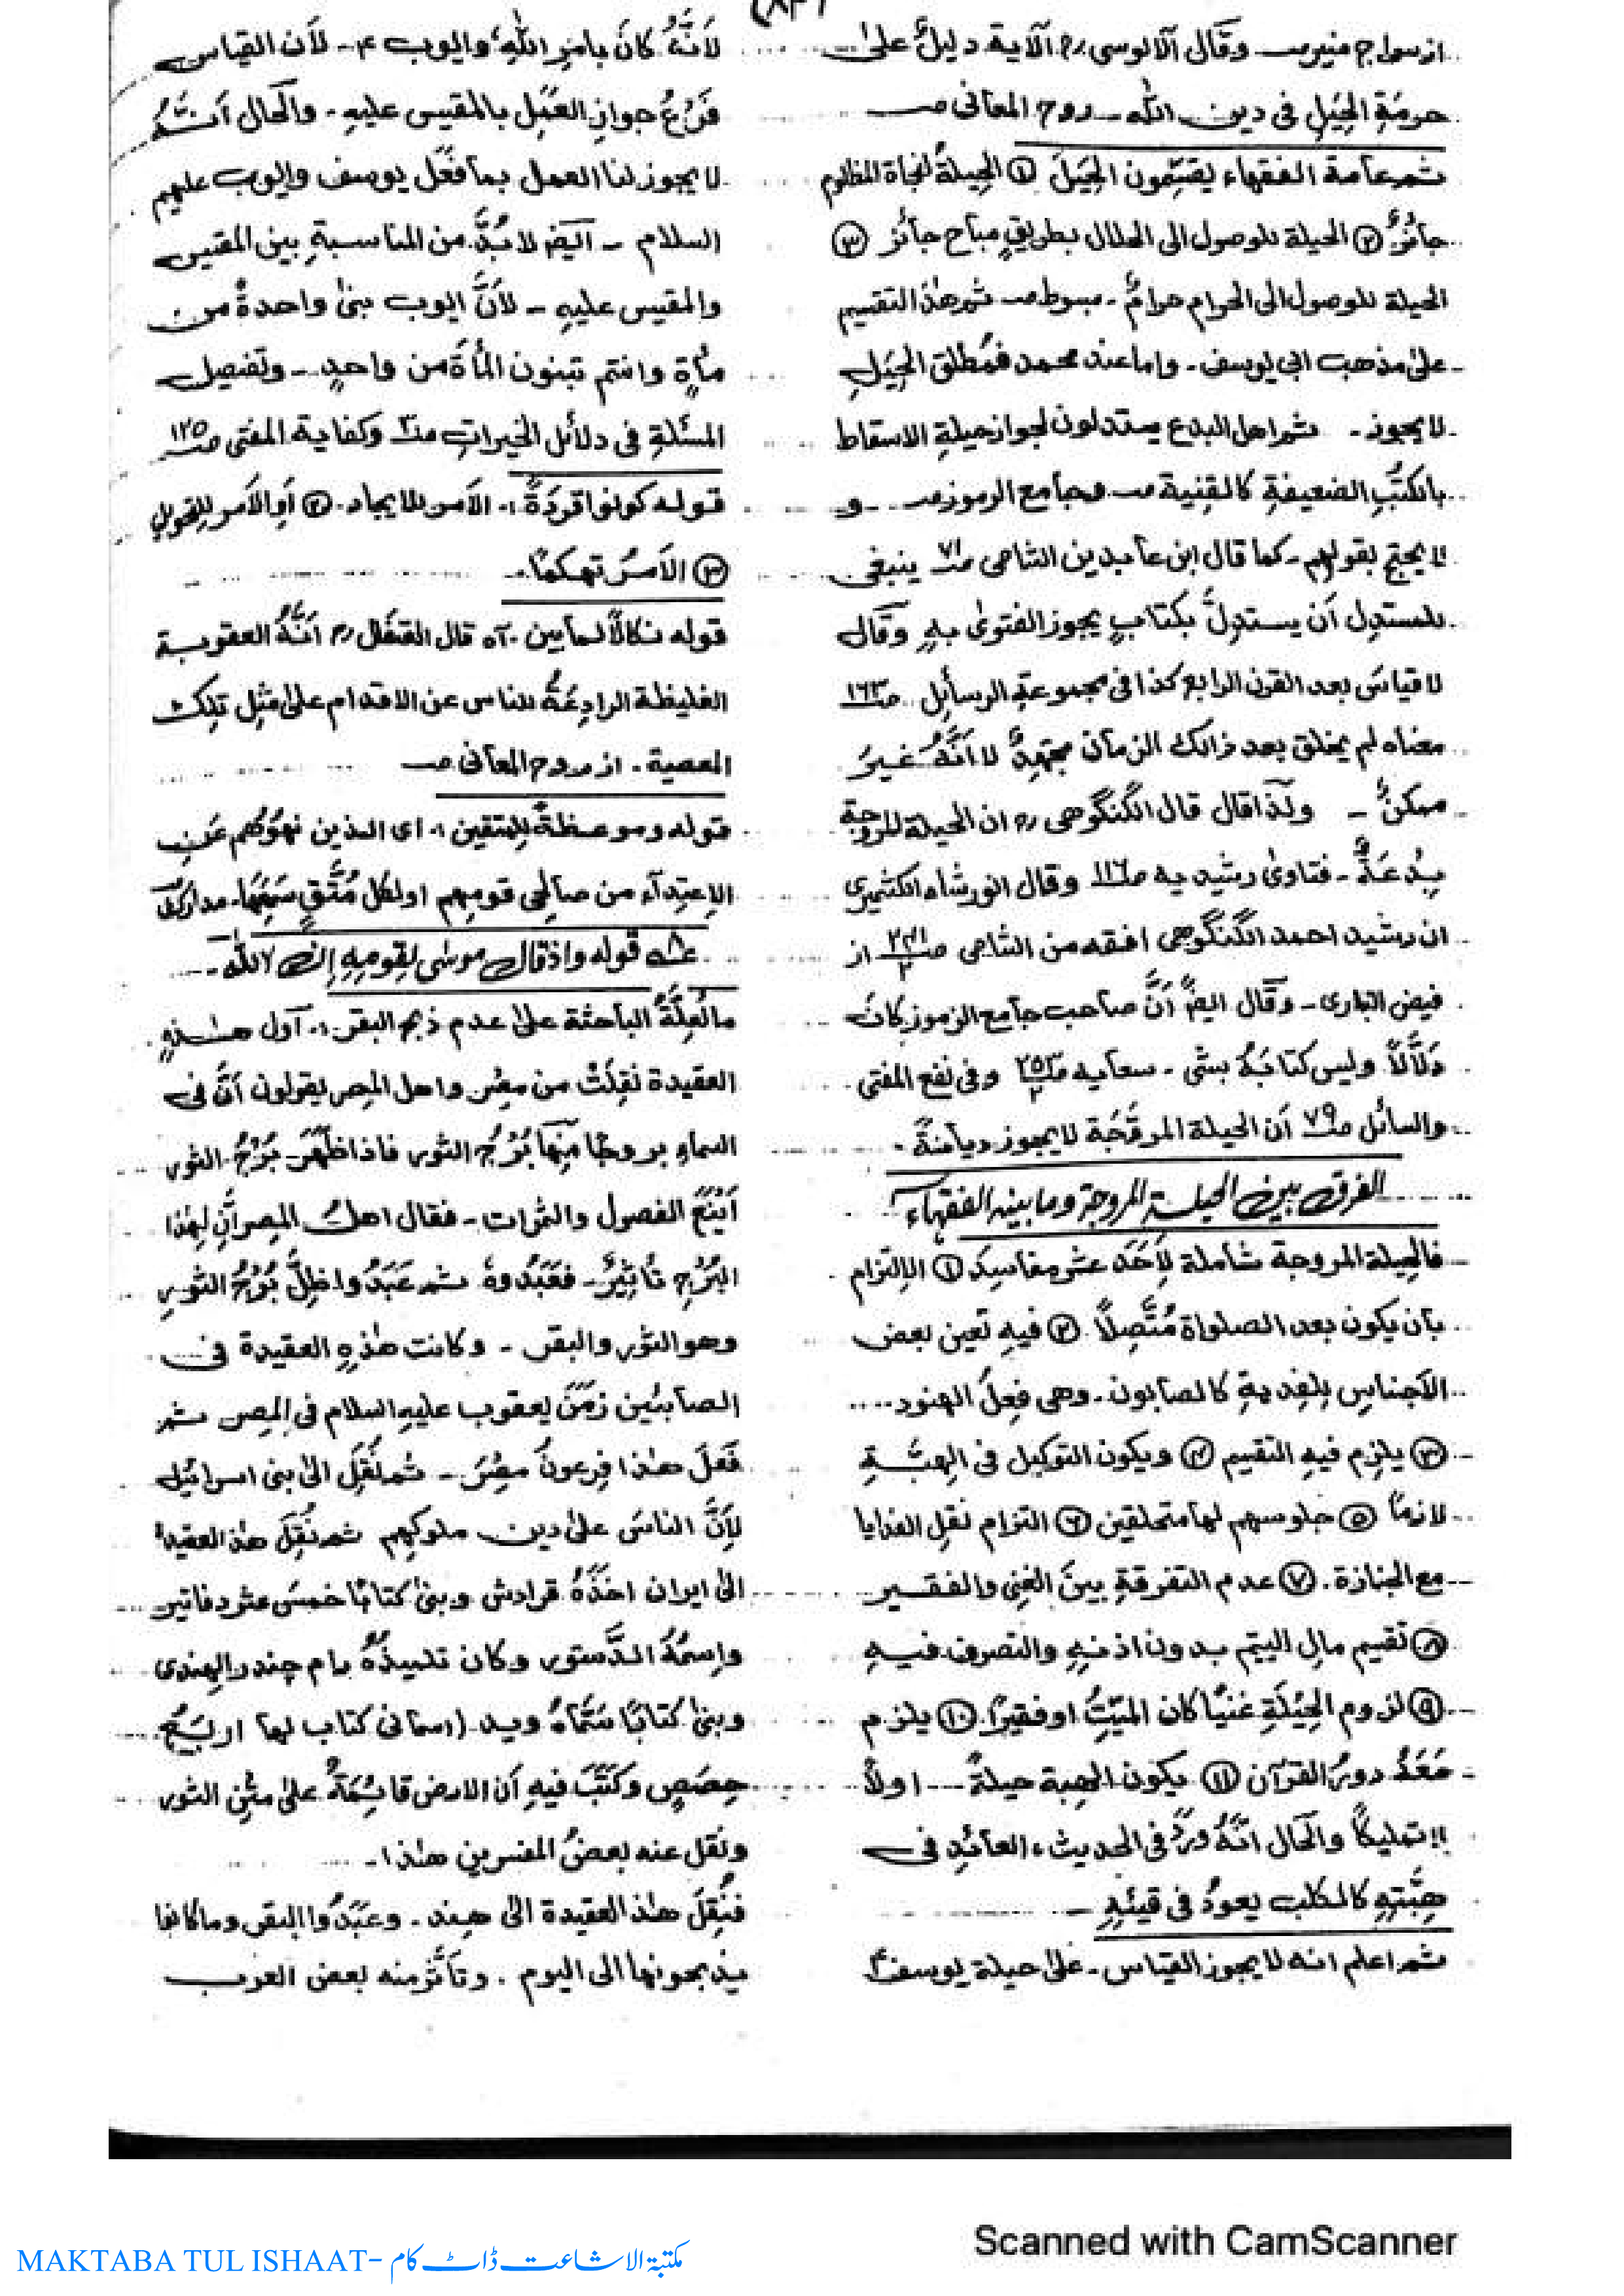 (٨٣)
از سراج منير صـ وقال آلالوسى رح الآية دليل على
حرمة الحِيَلِ فى دين الله ــ روح المعانى صـ
ثم عامة الفقهاء يقسّمون الحِيَلَ ① الحِيلة لنجاة المظلوم
جائزٌ ② الحيلة للوصول الى الحلال بطريقٍ مباح جائز ③
الحيلة للوصول الى الحرام حرامٌ ـ مبسوط صـ ثم هٰذ التقسيم
على مذهب ابى يوسف ـ واما عند محمد فمُطلق الحِيَلِ
لا يجوز ـ ثم اهل البدع يستدلون لجواز حيلة الاسقاط
بالكتبِ الضعيفةِ كالقنية صـ وجامع الرموز صـ و
لا يحتج بقولهم ـ كما قال ابن عابدين الشامى صـ٧١ ينبغى
للمستدل أن يستدِلَّ بكتابٍ يجوز الفتوىٰ بهٖ وقال
لا قياسَ بعد القرن الرابع كذا فى مجموعة الرسائل صـ١٦٣
معناه لم يخلق بعد ذالك الزمان مجتهدٌ لا أنَّهُ غيرَ
ممكنٌ ـ ولذا قال قال الگنگوهى رح ان الحيلة المروجة
بِدْعَةٌ ـ فتاوىٰ رشيديه صـ١١٦ وقال انور شاه الكشميرى
ان رشيد احمد الگنگوهى افقه من الشامى صـ٢٣١/٢ از
فيض البارى ـ وقال ايضًا أنَّ صاحب جامع الرموز كانَ
دَلَّالًا وليس كتابَهُ بشئ ـ سعايه صـ٢٥٣/٢ وفى نفع المفتى
والسائل صـ٧٩ أن الحيلة المروّجَة لا يجوز ديانةً ـ
الفرق بين الحيلة المروجة وما بينه الفقهاء
فالحيلة المروجة شاملة لِأَحَدَ عشر مفاسِدَ ① الالتزام
بان يكون بعد الصلواة مُتَّصِلًا ② فيهِ تعين بعض
الاجناسِ بلفديةِ كالصابون ـ وهى فِعلُ الهنود ....
③ يلزم فيهِ التقسيم ④ ويكون التوكيل فى الهِبَّةِ
لازمًا ⑤ جلوسهم لها متحلقين ⑥ التزام نقلِ الفدايا
مع الجنازة ـ ⑦ عدم التفرقةِ بينَ الغنِى والفقير
⑧ تقسيم مالِ اليتيم بدون اذنِهٖ والتصرف فيهِ
⑨ لزوم الحِيْلَةِ غنيًا كان الميّتُ او فقيرًا ⑩ يلزم
مَعَهُ دورُ القرآن ⑪ يكون الهبة حيلةً ـــ اولًا
لا تمليكًا والحال انَّهُ ورَدَ فى الحديث ، العائدِ فى
هِبَّتِهٖ كالكلب يعودُ فى قيئِهٖ ـ
ثم اعلم انه لا يجوز القياس ـ على حيلة يوسف ع
لأنَّهُ كانَ بامْرِ اللهِ ، وايوب ع ـ لأن القياس
فَرْعُ جوازِ العَمَلِ بالمقيس عليهِ ـ والحال أنَّهُ
لا يجوز لنا العمل بما فعَل يوسف وايوب عليهم
السلام ـ ايضًا لا بُدَّ من المناسبةِ بين المقيس
والمقيس عليهِ ـ لأنَّ ايوب بنىٰ واحدةً من
مأةٍ وانتم تبنون المأةَ من واحدٍ ـ وتفصيل
المسئلةِ فى دلائل الخيراتِ صـ وكفاية المفتى صـ١٢٥
قوله كونوا قردَةً ١ـ الأمر للايجاد ـ ② أو الأمر للتحويل
③ الأمرُ تهكمًا ـ
قوله نكالًا لما بين ـ آه قال القفال رح انَّهُ العقوبة
الغليظة الرادِعَةُ للناس عن الاقدام على مِثل تِلك
المعصية ـ از روح المعانى صـ
قوله وموعظةً للمتقين ١ـ اى الذين نهوهُم عَن
الاِعتِدآء من صالِحى قومِهِم او لكل مُتَّقٍ سَمِعَهَا ـ مدارك
قوله واذ قال موسٰى لِقومِهٖ إن الله ـ
ما العِلَّةُ الباحثة على عدم ذبح البقر ١ـ اول هٰذِهٖ
العقيدة نُقِلَتْ من مِصْر واهل المصر يقولون أنَّ فى
السماءِ بروجًا مِنْهَا بُرْجُ الثور فاذا ظَهَرَ بُرْجُ الثور
أيْنَعَ الفصول والثمرات ـ فقال اهلُ المصر أنَّ لِهٰذا
البُرْجِ تأثِيرٌ ـ فعَبَدُوهُ ثم عَبَدُوا ظِلَّ بُرْجُ الثورِ
وهو الثور والبقر ـ وكانت هٰذِهِ العقيدة فى
الصآبئين زمَنَ يعقوب عليهِ السلام فى المِصر ثم
فَعَلَ هٰذا فِرعونُ مِصْرَ ـ ثم نُقِلَ الى بنى اسرائيل
لِأنَّ الناسَ علىٰ دين ملوكِهِم ثم نُقِلَ هٰذ العقيدة
الىٰ ايران اخذَهُ قرادش وبنىٰ كتابًا خمسَ عشر دفاتير
واِسمُهُ الدَّستور وكان تلميذُهُ رام چندر الهِندى
وبنىٰ كتابًا سَمَّاهُ ويد ـ (اسمانى كتاب لها اربَعُ
حِصَصٍ وكَتَبَ فيهِ أن الارض قائِمَةٌ علىٰ متْنِ الثور
ونقل عنه بعضُ المفسرين هٰذا ـ
فنُقِلَ هٰذ العقيدة الى هند ـ وعبَدُوا البقر وما كانوا
يذبحونها الى اليوم ـ وتأثر منه بعض العرب
Scanned with CamScanner
MAKTABA TUL ISHAAT- مكتبة الاشاعت ڈاٹ کام